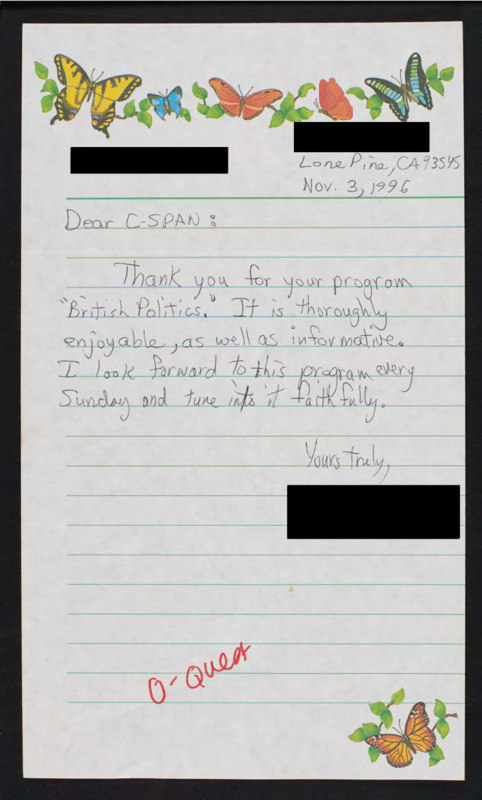 Lone Pine, CA 93545
Nov. 3, 1996
Dear C-SPAN:
Thank you for your program
"British Politics." It is thoroughly
enjoyable, as well as informative.
I look forward to this program every
Sunday and tune into it faithfully.
Yours truly,
O-Quest